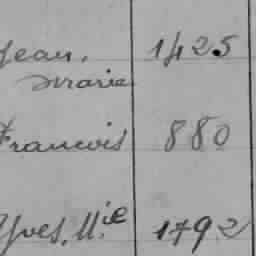 Jean. 1425
Marie
Francois 880
Yves. M.ie 1792